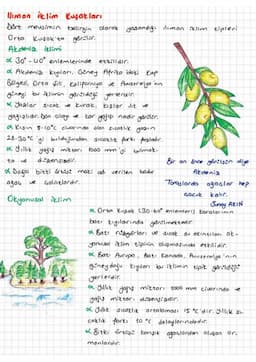 Ilıman İklim Kuşakları
Dört mevsimin belirgin olarak yaşandığı ılıman iklim tipleri
Orta Kuşak'ta görülür.
Akdeniz İklimi
30°-40° enlemlerinde etkilidir.
Akdeniz kıyıları, Güney Afrika'daki Kap
Bölgesi, Orta Şili, Kaliforniya ve Avustralya'nın
güneyi bu iklimin görüldüğü yerlerdir.
Yazlar sıcak ve kurak, kışlar ılık ve
yağışlıdır. Don olayı ve kar yağışı nadir görülür.
Kışın 8-10°C civarında olan sıcaklık yazın
28-30°C yi bulduğundan sıcaklık farkı fazladır.
Yıllık yağış miktarı 1000 mm'yi bulmak-
ta ve düzensizdir.
Doğal bitki örtüsü maki adı verilen bodur
ağaç ve çalılardır.
Bir an önce görülsün diye
Akdeniz
Toroslarda ağaçlar hep
çocuk kalır.
Sunay AKIN
Okyanusal İklim
Orta Kuşak (30-60° enlemleri) karalarının
batı kıyılarında görülmektedir.
Batı rüzgârları ve sıcak su akıntıları ok-
yanusal iklim tipinin oluşmasında etkilidir.
Batı Avrupa, Batı Kanada, Avustralya'nın
güneydoğu kıyıları bu iklimin tipik görüldüğü
yerlerdir.
Yıllık yağış miktarı 1000 mm civarında ve
yağış miktarı düzenlidir.
Yıllık sıcaklık ortalaması 15 °C'dir. Yıllık sı-
caklık farkı 10 °C dolaylarındadır.
Bitki örtüsü karışık ağaçlardan oluşan or-
manlardır.